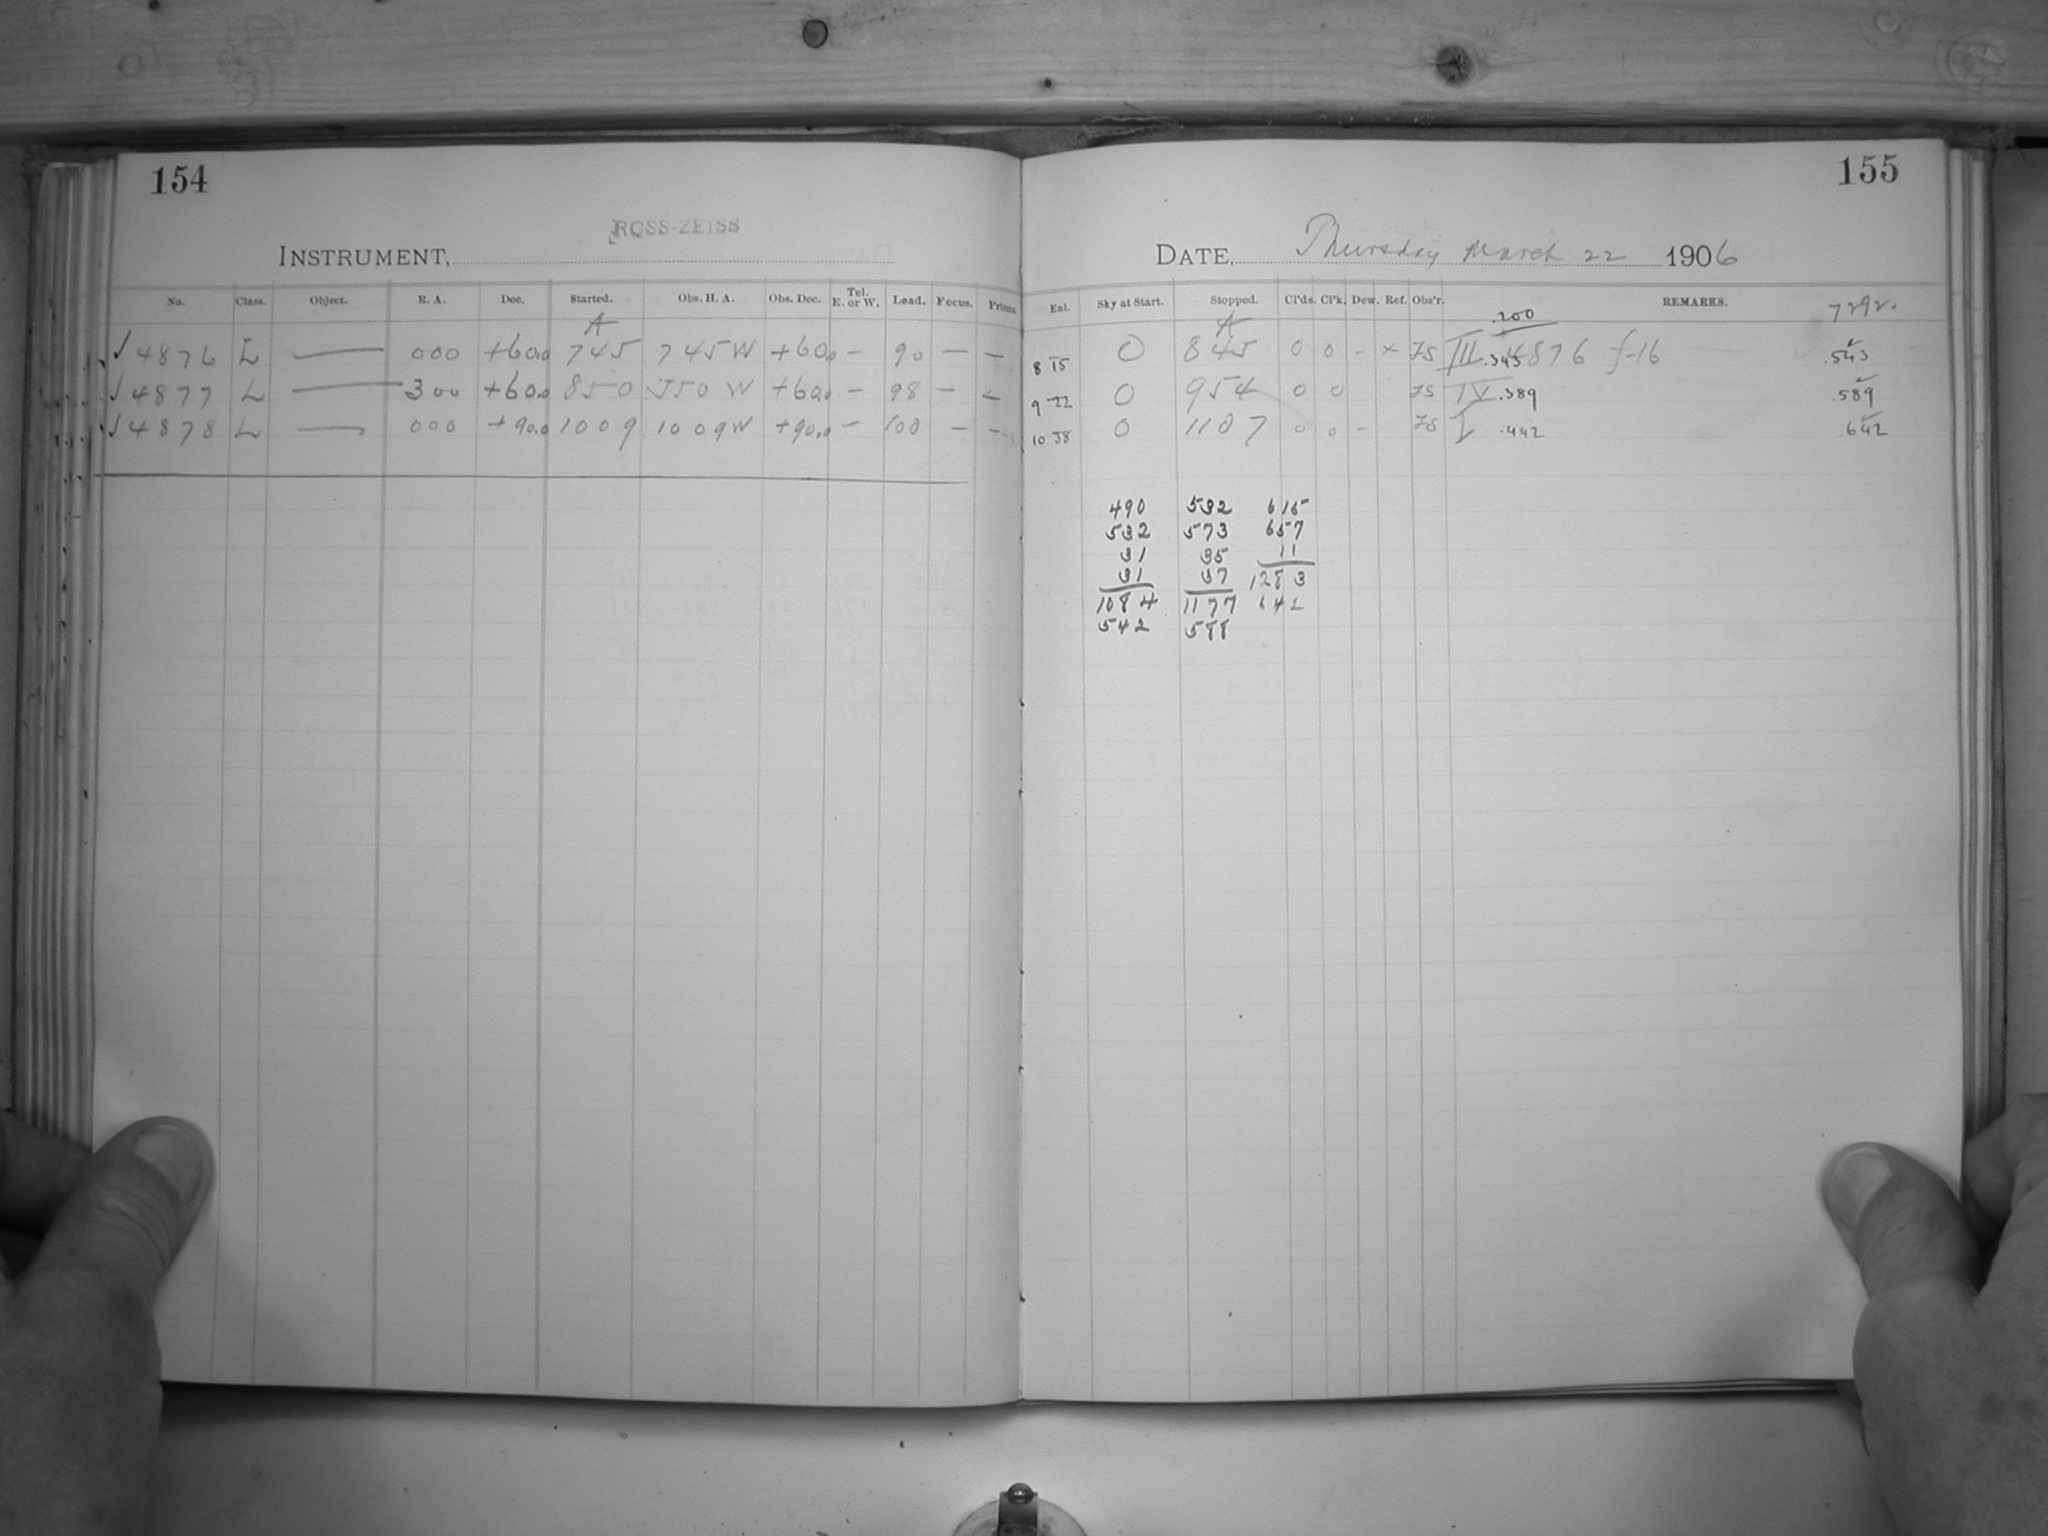 154
ROSS-ZEISS
INSTRUMENT,
No. Class. Object. R. A. Dec. Started. Obs. H. A. Obs. Dec. Tel. E. or W. Load. Focus. Prisms.
A
✓ 4876 L — 000 +60.0 745 745 W +60.0 — 90 — —
✓ 4877 L — 300 +60.0 850 550 W +60.0 — 98 — —
✓ 4878 L — 000 +90.0 1009 1009 W +90.0 — 100 — —
155
DATE, Thursday March 22 1906
Eal. Sky at Start. Stopped. Cl'ds. Cl'k. Dew. Ref. Obs'r. REMARKS. 7292.
A .200
8 15 0 845 0 0 - x JS III .343 4876 f-16 .543
9 22 0 954 0 0 JS IV .389 .589
10 38 0 1107 0 0 - JS I .442 .642
490 532 615
532 573 657
31 35 11
31 37 1283
1084 1177 642
542 588